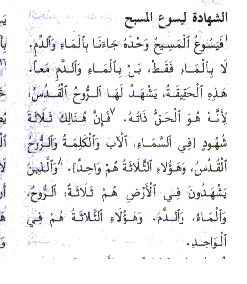 الشهادة ليسوع المسيح
⁶فَيَسُوعُ ٱلْمَسِيحُ وَحْدَهُ جَاءَنَا بِٱلْمَاءِ وَٱلدَّمِ.
لَا بِٱلْمَاءِ فَقَطْ، بَلْ بِٱلْمَاءِ وَٱلدَّمِ مَعاً.
هَذِهِ ٱلْحَقِيقَةُ، يَشْهَدُ لَهَا ٱلرُّوحُ ٱلْقُدُسُ،
لِأَنَّهُ هُوَ ٱلْحَقُّ ذَاتُهُ. ⁷فَإِنَّ هُنَالِكَ ثَلَاثَةَ
شُهُودٍ [فِي ٱلسَّمَاءِ، ٱلْآبُ وَٱلْكَلِمَةُ وَٱلرُّوحُ
ٱلْقُدُسُ، وَهَؤُلَاءِ ٱلثَّلَاثَةُ هُمْ وَاحِدٌ]. ⁸وَٱلَّذِينَ
يَشْهَدُونَ فِي ٱلْأَرْضِ هُمْ ثَلَاثَةٌ، ٱلرُّوحُ،
وَٱلْمَاءُ، وَٱلدَّمُ. وَهَؤُلَاءِ ٱلثَّلَاثَةُ هُمْ فِي
ٱلْوَاحِدِ.